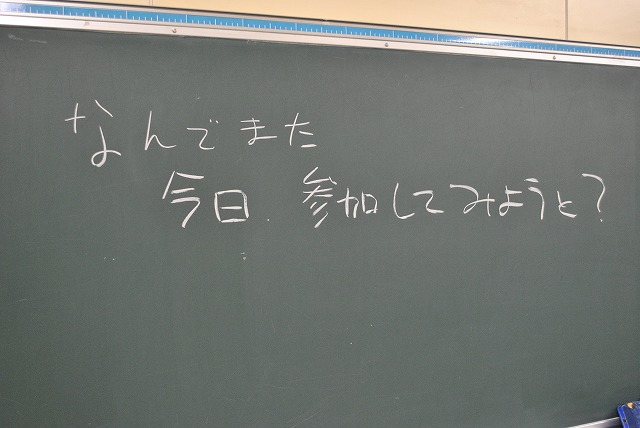 なんでまた
今日、参加してみようと？